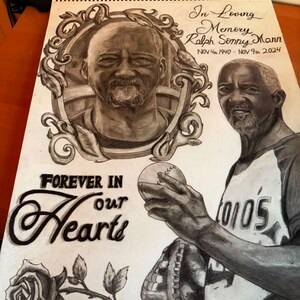 In Loving
Memory
Ralph Sonny Mann
Nov 4th, 1940 - Nov 9th, 2024
FOREVER IN
our
Hearts